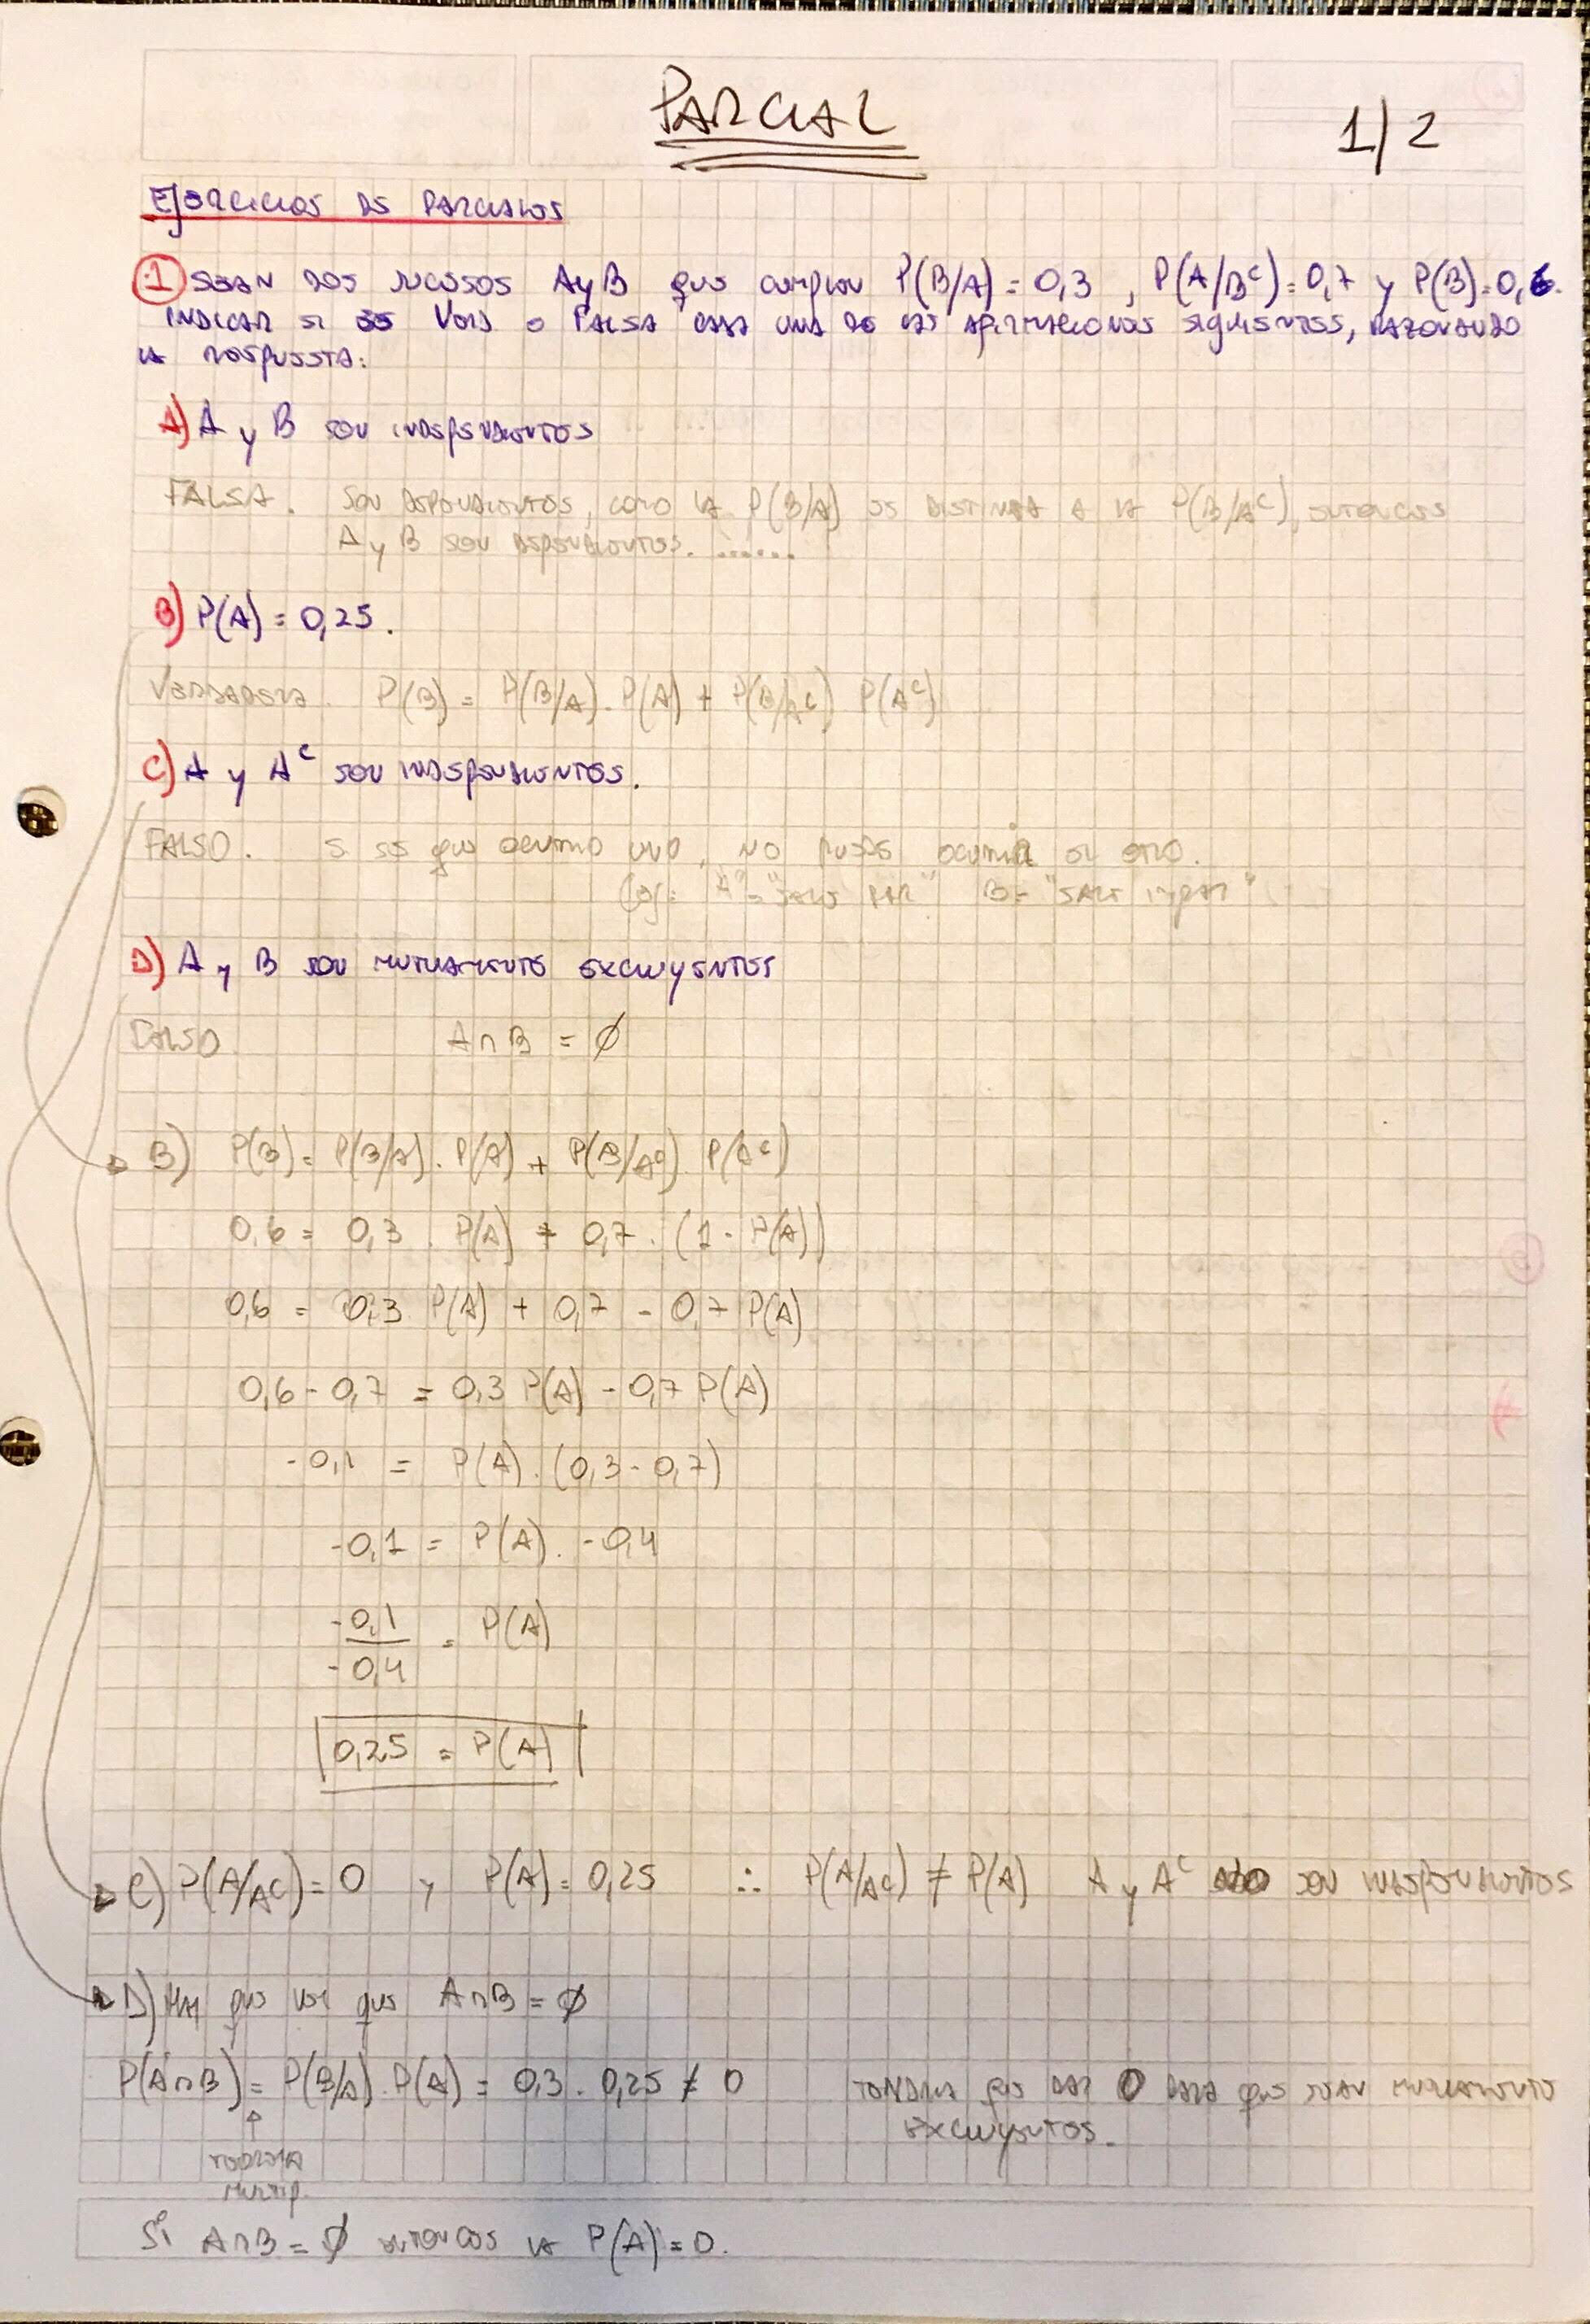 PARCIAL
1/2
EJERCICIOS DE PARCIALES
1 SEAN DOS SUCESOS A y B que cumplen P(B/A) = 0,3 , P(A/Bᶜ) = 0,7 y P(B) = 0,6.
INDICAR SI ES VERD o FALSA CADA UNA DE LAS AFIRMACIONES SIGUIENTES, RAZONANDO
LA RESPUESTA:
A) A y B SON INDEPENDIENTES
FALSA. SON DEPENDIENTES, COMO LA P(B/A) ES DISTINTA A LA P(B/Aᶜ), ENTONCES
A y B SON DEPENDIENTES. ......
B) P(A) = 0,25.
VERDADERA. P(B) = P(B/A) . P(A) + P(B/Aᶜ) P(Aᶜ)
C) A y Aᶜ SON INDEPENDIENTES.
FALSO. SI ES que OCURRIO UNO, NO PUEDE OCURRIR EL OTRO.
Ej: "A" = "SALE PAR" B = "SALE IMPAR"
D) A y B SON MUTUAMENTE EXCLUYENTES
FALSO A∩B = ∅
B) P(B) = P(B/A) . P(A) + P(B/Aᶜ) . P(Aᶜ)
0,6 = 0,3 . P(A) + 0,7 . (1 - P(A))
0,6 = 0,3 P(A) + 0,7 - 0,7 P(A)
0,6 - 0,7 = 0,3 P(A) - 0,7 P(A)
-0,1 = P(A) . (0,3 - 0,7)
-0,1 = P(A) . -0,4
-0,1 / -0,4 = P(A)
0,25 = P(A)
C) P(A/Aᶜ) = 0 y P(A) = 0,25 ∴ P(A/Aᶜ) ≠ P(A) A y Aᶜ NO SON INDEPENDIENTES
D) HAY que VER que A∩B = ∅
P(A∩B) = P(B/A) . P(A) = 0,3 . 0,25 ≠ 0 TENDRIA que DAR 0 PARA que SEAN MUTUAMENTE
EXCLUYENTES.
TEOREMA
MULTIP.
SI A∩B = ∅ ENTONCES LA P(A) = 0.